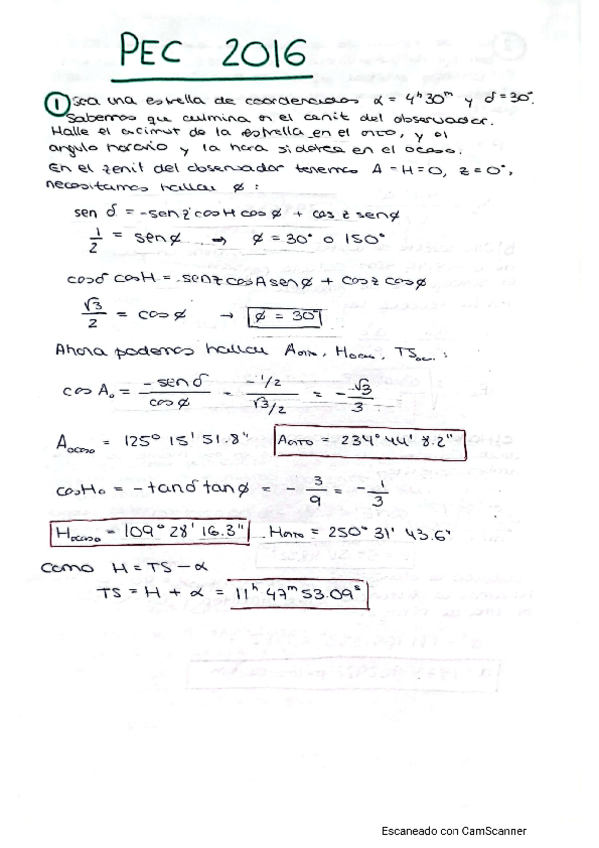 PEC 2016
① Sea una estrella de coordenadas α = 4ʰ30ᵐ y δ = 30°.
Sabemos que culmina en el cenit del observador.
Halle el acimut de la estrella en el orto, y el
angulo horario y la hora sidérea en el ocaso.
En el zenit del observador tenemos A = H = 0, z = 0°,
necesitamos hallar ϕ :
sen δ = -senz cosH cosϕ + cosz senϕ
1/2 = senϕ → ϕ = 30° o 150°
cosδ cosH = senz cosA senϕ + cosz cosϕ
√3/2 = cosϕ → ϕ = 30°
Ahora podemos hallar Aorto, Hocaso, TSoc. :
cos A₀ = -senδ/cosϕ = -1/2/√3/2 = -√3/3
Aocaso = 125° 15' 51.8" Aorto = 234° 44' 8.2"
cosH₀ = -tanδ tanϕ = -3/9 = -1/3
Hocaso = 109° 28' 16.3" Horto = 250° 31' 43.6"
Como H = TS - α
TS = H + α = 11ʰ 47ᵐ 53.09ˢ
Escaneado con CamScanner